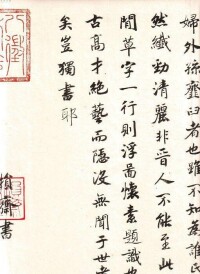 婦外孫虀臼者也雖不知為誰氏
然纖勁清麗非晉人不能至此
閒草字一行則浮圖懷素題識也
古高才絕藝而隱沒無聞于世者
矣豈獨書耶
損齋書